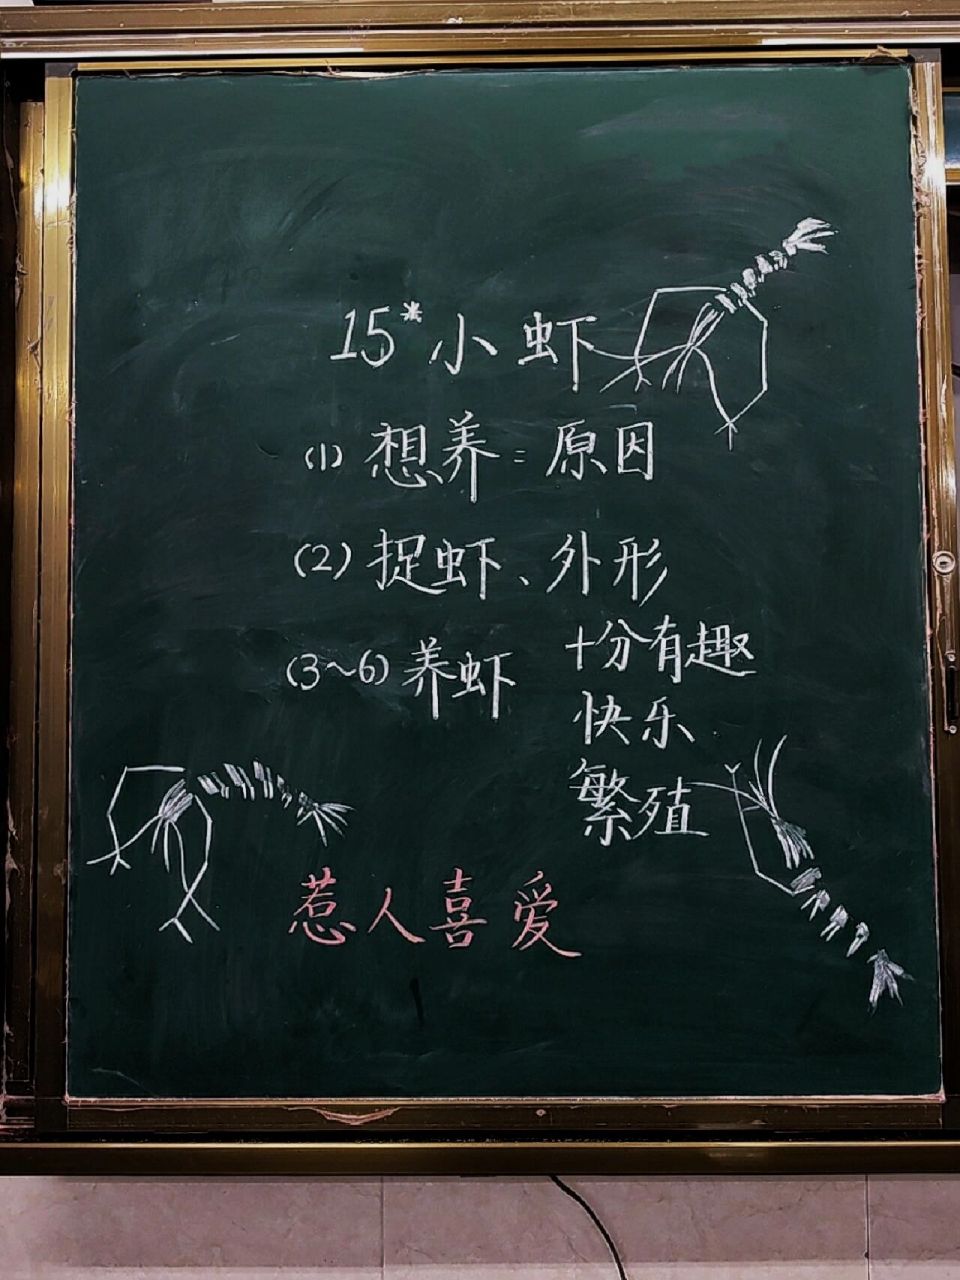 15* 小虾
(1) 想养：原因
(2) 捉虾、外形
(3~6) 养虾 十分有趣
快乐
繁殖
惹人喜爱